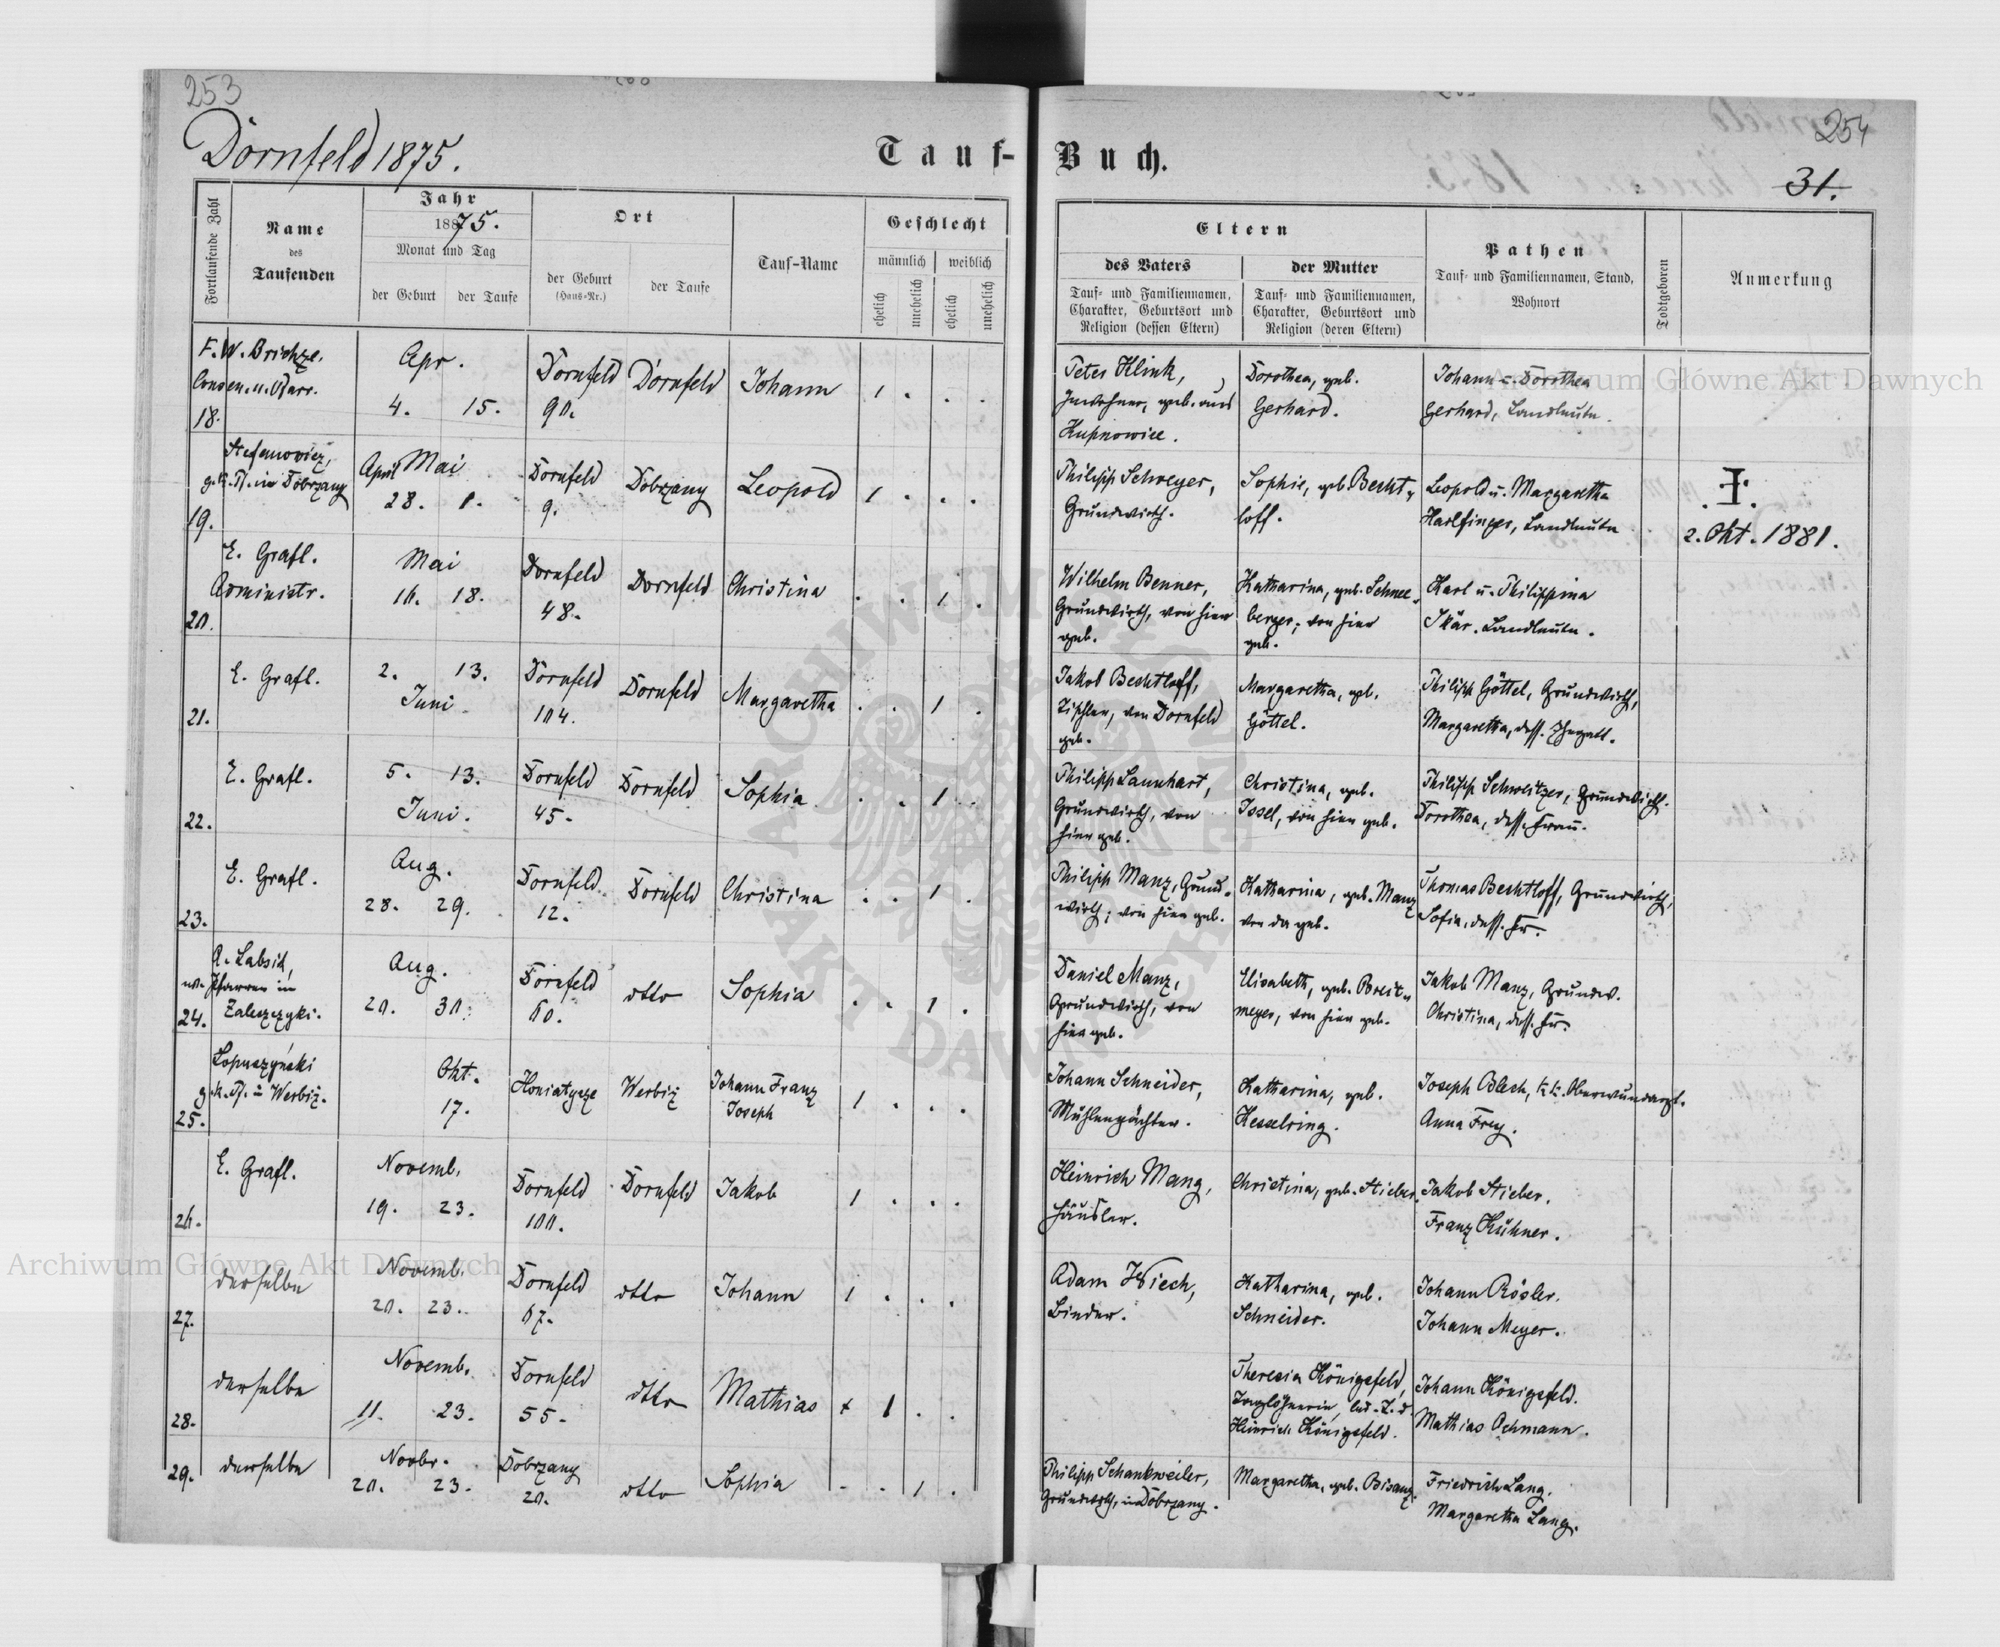 253
254
Dornfeld 1875.
Tauf-Buch.
31.
Fortlaufende Zahl
Name
des
Taufenden
Jahr
1875.
Monat und Tag
der Geburt
der Taufe
Ort
der Geburt
(Haus-Nr.)
der Taufe
Tauf-Name
Geschlecht
männlich
weiblich
ehelich
unehelich
ehelich
unehelich
Eltern
des Vaters
Tauf- und Familiennamen,
Charakter, Geburtsort und
Religion (dessen Eltern)
der Mutter
Tauf- und Familiennamen,
Charakter, Geburtsort und
Religion (deren Eltern)
Pathen
Tauf- und Familiennamen, Stand,
Wohnort
Todtgeboren
Anmerkung
18.
F. W.
u. Pfarr.
Apr.
4. 15.
Dornfeld
90.
Dornfeld
Johann
1 . . .
Peter Klink,
Inwohner, geb. aus
Dorothea, geb.
Gerhard.
Johann u. Dorothea
Gerhard, Landleute.
19.
g. k. Pf. in Dobrzany
April Mai
28. 1.
Dornfeld
9.
Dobrzany
Leopold
1 . . .
Philipp Schreyer,
Grundwirth.
Sophie, geb. Becht-
loff.
Leopold u. Margaretha
Harlfinger, Landleute
2. Okt. 1881.
20.
E. Grafl.
Administr.
Mai
16. 18.
Dornfeld
48.
Dornfeld
Christina
. . 1 .
Wilhelm Benner,
Grundwirth, von hier
geb.
Katharina, geb. Schnee-
berger; von hier
geb.
Karl u. Philippina
Landleute.
21.
E. Grafl.
2. 13.
Juni
Dornfeld
104.
Dornfeld
Margaretha
. . 1 .
Jakob Bechtloff,
Tischler, von Dornfeld
geb.
Margaretha, geb.
Göttel.
Philipp Göttel, Grundwirth,
Margaretha, dess. Ehegatt.
22.
E. Grafl.
5. 13.
Juni.
Dornfeld
45.
Dornfeld
Sophia
. . 1 .
Philipp Launhart,
Grundwirth, von
hier geb.
Christina, geb.
Issel, von hier geb.
Philipp Schweitzer, Grundwirth.
Dorothea, dess. Frau.
23.
E. Grafl.
Aug.
28. 29.
Dornfeld
12.
Dornfeld
Christina
. . 1 .
Philipp Manz, Grund-
wirth; von hier geb.
Katharina, geb. Manz
von da geb.
Thomas Bechtloff, Grundwirth,
Sofia, dess. Fr.
24.
Pfarrer in
Zaleszczyki.
Aug.
20. 30.
Dornfeld
60.
dtto
Sophia
. . 1 .
Daniel Manz,
Grundwirth, von
hier geb.
Elisabeth, geb. Breit-
meyer, von hier geb.
Jakob Manz, Grundw.
Christina, dess. Fr.
25.
Łopuszyński
g. k. Pf. in Werbiz.
Okt.
17.
Honiatycze
Werbiz
Johann Franz
Joseph
1 . . .
Johann Schneider,
Mühlenpächter.
Katharina, geb.
Kesselring.
Joseph Blech, k. k. Oberwundarzt.
Anna Frey.
26.
E. Grafl.
Novemb.
19. 23.
Dornfeld
100.
Dornfeld
Jakob
1 . . .
Heinrich Mang,
Häusler.
Christina, geb. Stieber.
Jakob Stieber.
Franz Kühner.
27.
derselbe
Novemb.
20. 23.
Dornfeld
67.
dtto
Johann
1 . . .
Adam Wiech,
Binder.
Katharina, geb.
Schneider.
Johann Rösler.
Johann Meyer.
28.
derselbe
Novemb.
11. 23.
Dornfeld
55.
dtto
Mathias
+ 1 . .
Theresia Königsfeld,
Taglöhnerin, led. T. d.
Heinrich Königsfeld.
Johann Königsfeld.
Mathias Ochmann.
29.
derselbe
Novbr.
20. 23.
Dobrzany
20.
dtto
Sophia
. . 1 .
Philipp Schankweiler,
Grundwrth, in Dobrzany.
Margaretha, geb. Bisanz.
Friedrich Lang.
Margaretha Lang.
Archiwum Główne Akt Dawnych
Archiwum Główne Akt Dawnych
ARCHIWUM GŁÓWNE
AKT DAWNYCH